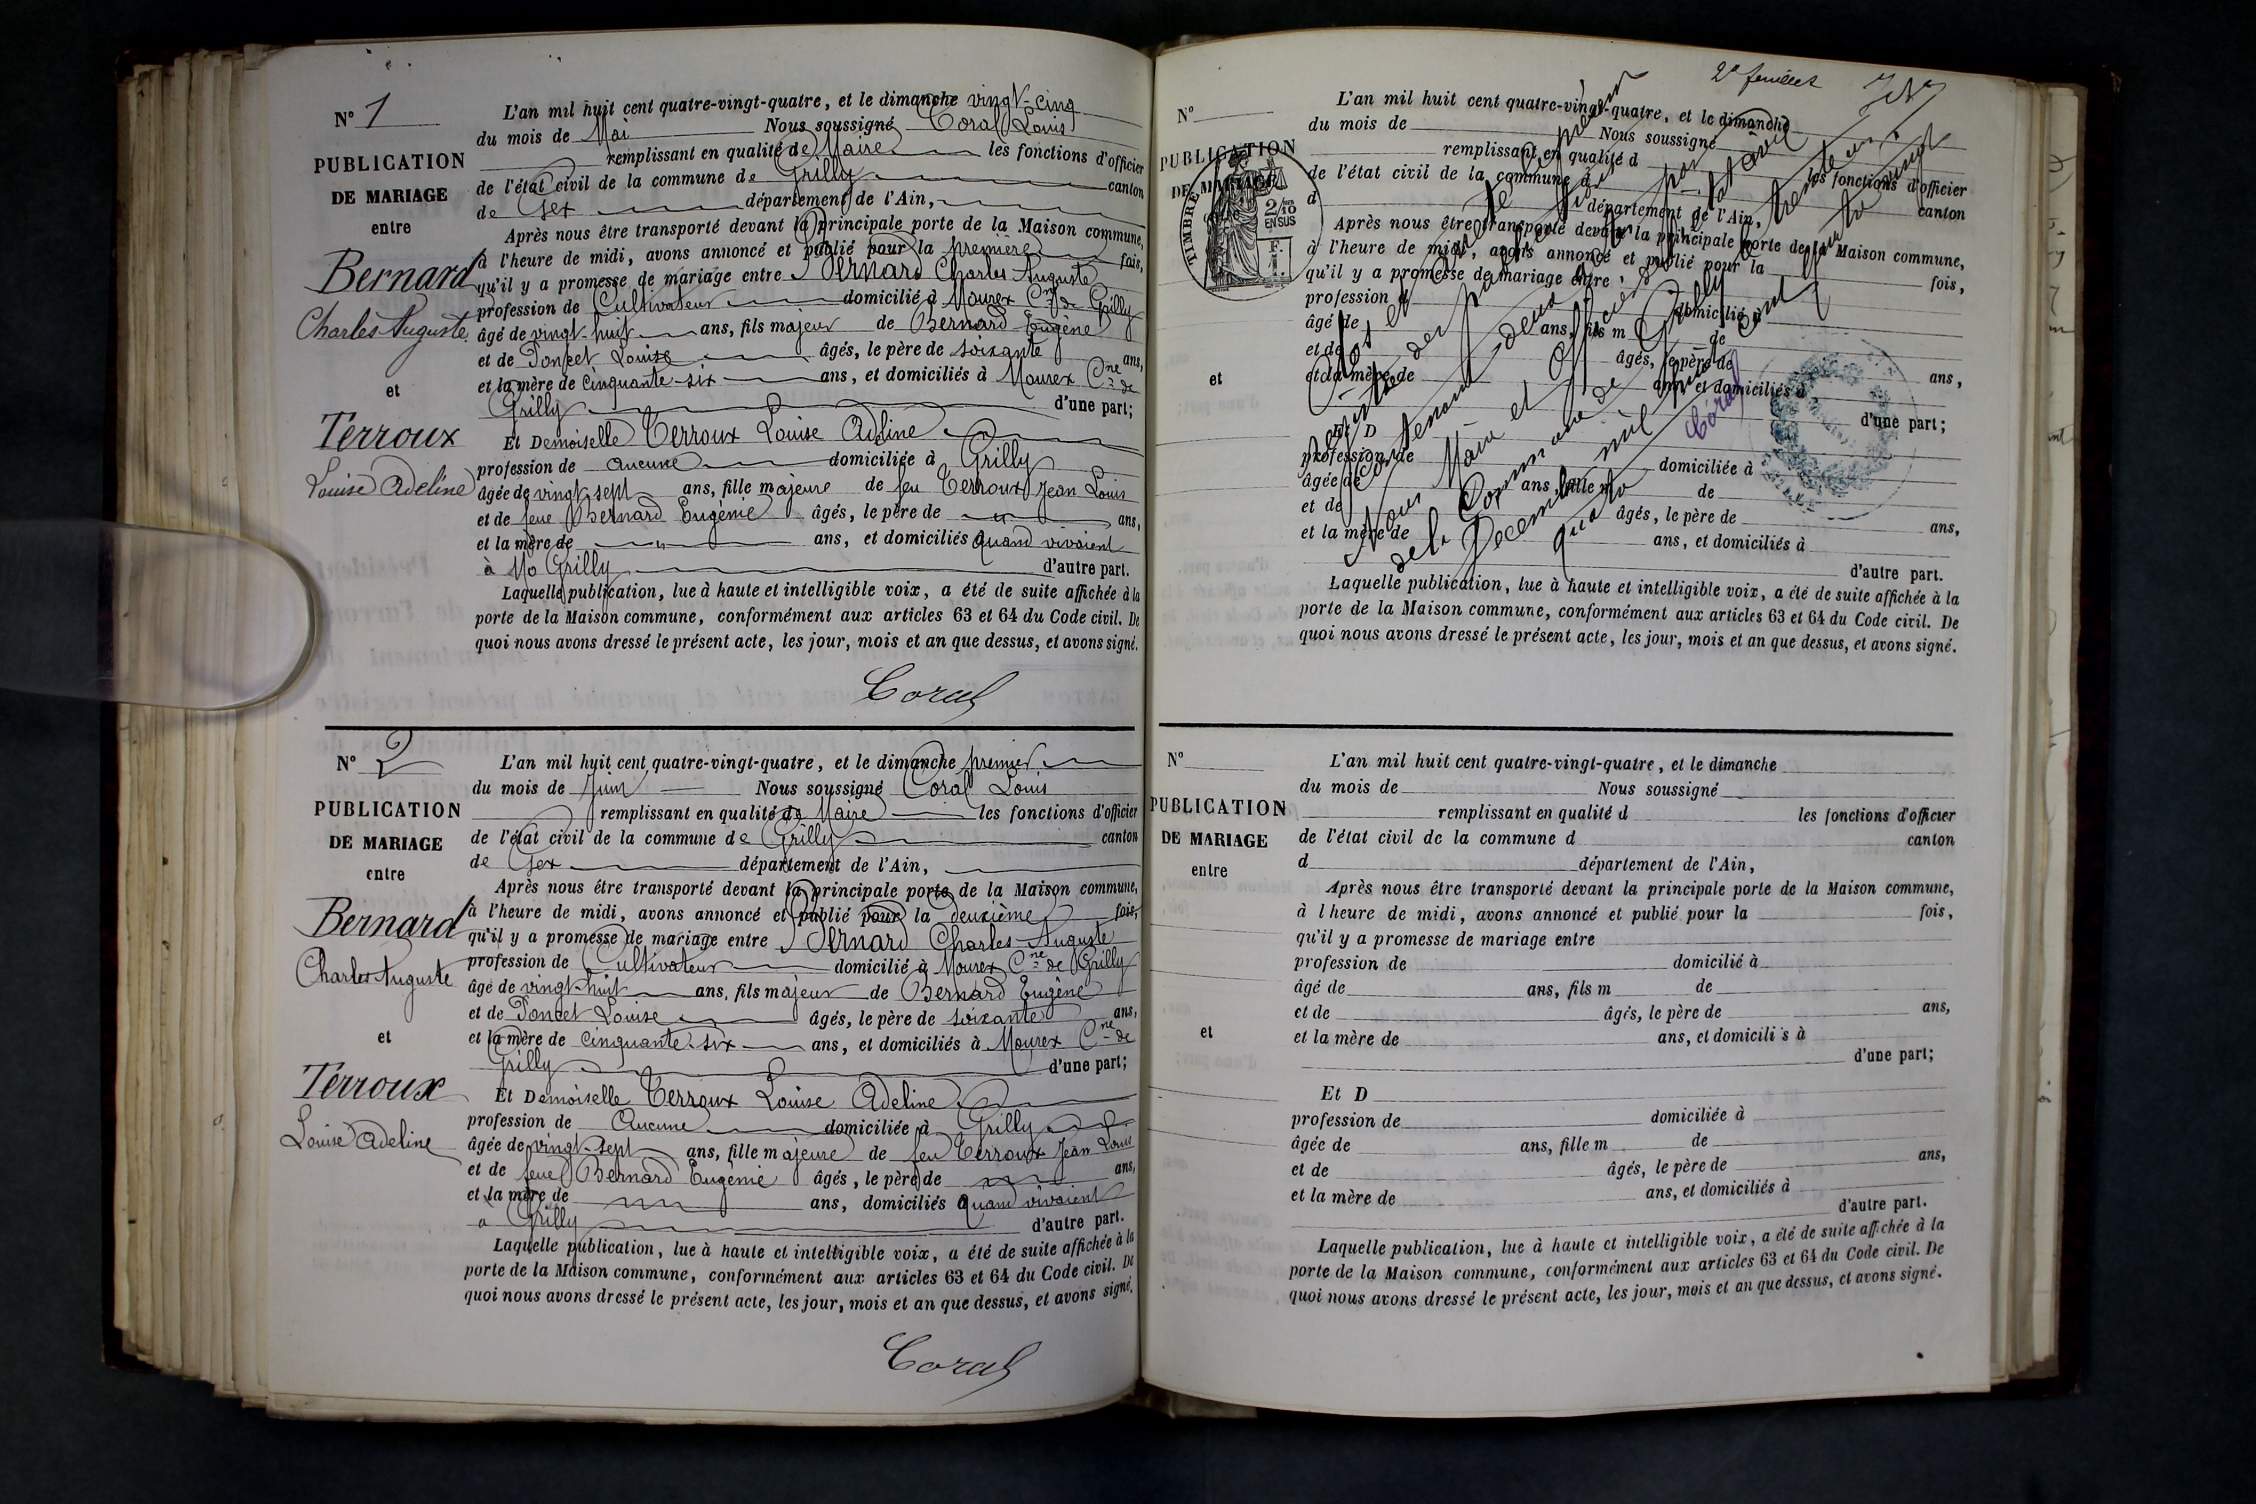 N° 1
PUBLICATION
DE MARIAGE
entre
Bernard
Charles Auguste
et
Terroux
Louise Adeline
L'an mil huit cent quatre-vingt-quatre, et le dimanche vingt-cinq
du mois de Mai Nous soussigné Coral Louis
remplissant en qualité de Maire les fonctions d'officier
de l'état civil de la commune de Grilly canton
de Gex département de l'Ain,
Après nous être transporté devant la principale porte de la Maison commune,
à l'heure de midi, avons annoncé et publié pour la première fois,
qu'il y a promesse de mariage entre Bernard Charles Auguste
profession de Cultivateur domicilié à Mourex Cne de Grilly
âgé de vingt-huit ans, fils majeur de Bernard Eugène
et de Poncet Louise âgés, le père de soixante ans,
et la mère de cinquante-six ans, et domiciliés à Mourex Cne de
Grilly d'une part;
Et Demoiselle Terroux Louise Adeline
profession de aucune domiciliée à Grilly
âgée de vingt-sept ans, fille majeure de feu Terroux Jean Louis
et de feue Bernard Eugènie âgés, le père de ans,
et la mère de ans, et domiciliés quand vivaient
à Grilly d'autre part.
Laquelle publication, lue à haute et intelligible voix, a été de suite affichée à la
porte de la Maison commune, conformément aux articles 63 et 64 du Code civil. De
quoi nous avons dressé le présent acte, les jour, mois et an que dessus, et avons signé.
Coral
N° 2
PUBLICATION
DE MARIAGE
entre
Bernard
Charles Auguste
et
Terroux
Louise Adeline
L'an mil huit cent quatre-vingt-quatre, et le dimanche premier
du mois de Juin Nous soussigné Coral Louis
remplissant en qualité de Maire les fonctions d'officier
de l'état civil de la commune de Grilly canton
de Gex département de l'Ain,
Après nous être transporté devant la principale porte de la Maison commune,
à l'heure de midi, avons annoncé et publié pour la deuxième fois,
qu'il y a promesse de mariage entre Bernard Charles-Auguste
profession de Cultivateur domicilié à Mourex Cne de Grilly
âgé de vingt-huit ans, fils majeur de Bernard Eugène
et de Poncet Louise âgés, le père de soixante ans,
et la mère de cinquante-six ans, et domiciliés à Mourex Cne de
Grilly d'une part;
Et Demoiselle Terroux Louise Adeline
profession de Aucune domiciliée à Grilly
âgée de vingt-sept ans, fille majeure de feu Terroux Jean Louis
et de feue Bernard Eugènie âgés, le père de ans,
et la mère de ans, domiciliés quand vivaient
à Grilly d'autre part.
Laquelle publication, lue à haute et intelligible voix, a été de suite affichée à la
porte de la Maison commune, conformément aux articles 63 et 64 du Code civil. De
quoi nous avons dressé le présent acte, les jour, mois et an que dessus, et avons signé.
Coral
2e feuillet
N°
PUBLICATION
DE MARIAGE
TIMBRE
2/10
EN SUS
F.
1.
et
L'an mil huit cent quatre-vingt-quatre, et le dimanche
du mois de Nous soussigné
remplissant en qualité d les fonctions d'officier
de l'état civil de la commune d canton
d département de l'Ain,
Après nous être transporté devant la principale porte de la Maison commune,
à l'heure de midi, avons annoncé et publié pour la fois,
qu'il y a promesse de mariage entre
profession d domicilié à
âgé de ans, fils m de
et de âgés, le père de ans,
et la mère de ans, et domiciliés à
d'une part;
Et D
profession de domiciliée à
âgée de ans, fille m de
et de âgés, le père de ans,
et la mère de ans, et domiciliés à
d'autre part.
Nous Maire et Officier
de la Commune de Grilly
Décembre mil huit cent
quatre
Coral
Laquelle publication, lue à haute et intelligible voix, a été de suite affichée à la
porte de la Maison commune, conformément aux articles 63 et 64 du Code civil. De
quoi nous avons dressé le présent acte, les jour, mois et an que dessus, et avons signé.
N°
PUBLICATION
DE MARIAGE
entre
et
L'an mil huit cent quatre-vingt-quatre, et le dimanche
du mois de Nous soussigné
remplissant en qualité d les fonctions d'officier
de l'état civil de la commune d canton
d département de l'Ain,
Après nous être transporté devant la principale porte de la Maison commune,
à l heure de midi, avons annoncé et publié pour la fois,
qu'il y a promesse de mariage entre
profession de domicilié à
âgé de ans, fils m de
et de âgés, le père de ans,
et la mère de ans, et domicili s à
d'une part;
Et D
profession de domiciliée à
âgée de ans, fille m de
et de âgés, le père de ans,
et la mère de ans, et domiciliés à
d'autre part.
Laquelle publication, lue à haute et intelligible voix, a été de suite affichée à la
porte de la Maison commune, conformément aux articles 63 et 64 du Code civil. De
quoi nous avons dressé le présent acte, les jour, mois et an que dessus, et avons signé.